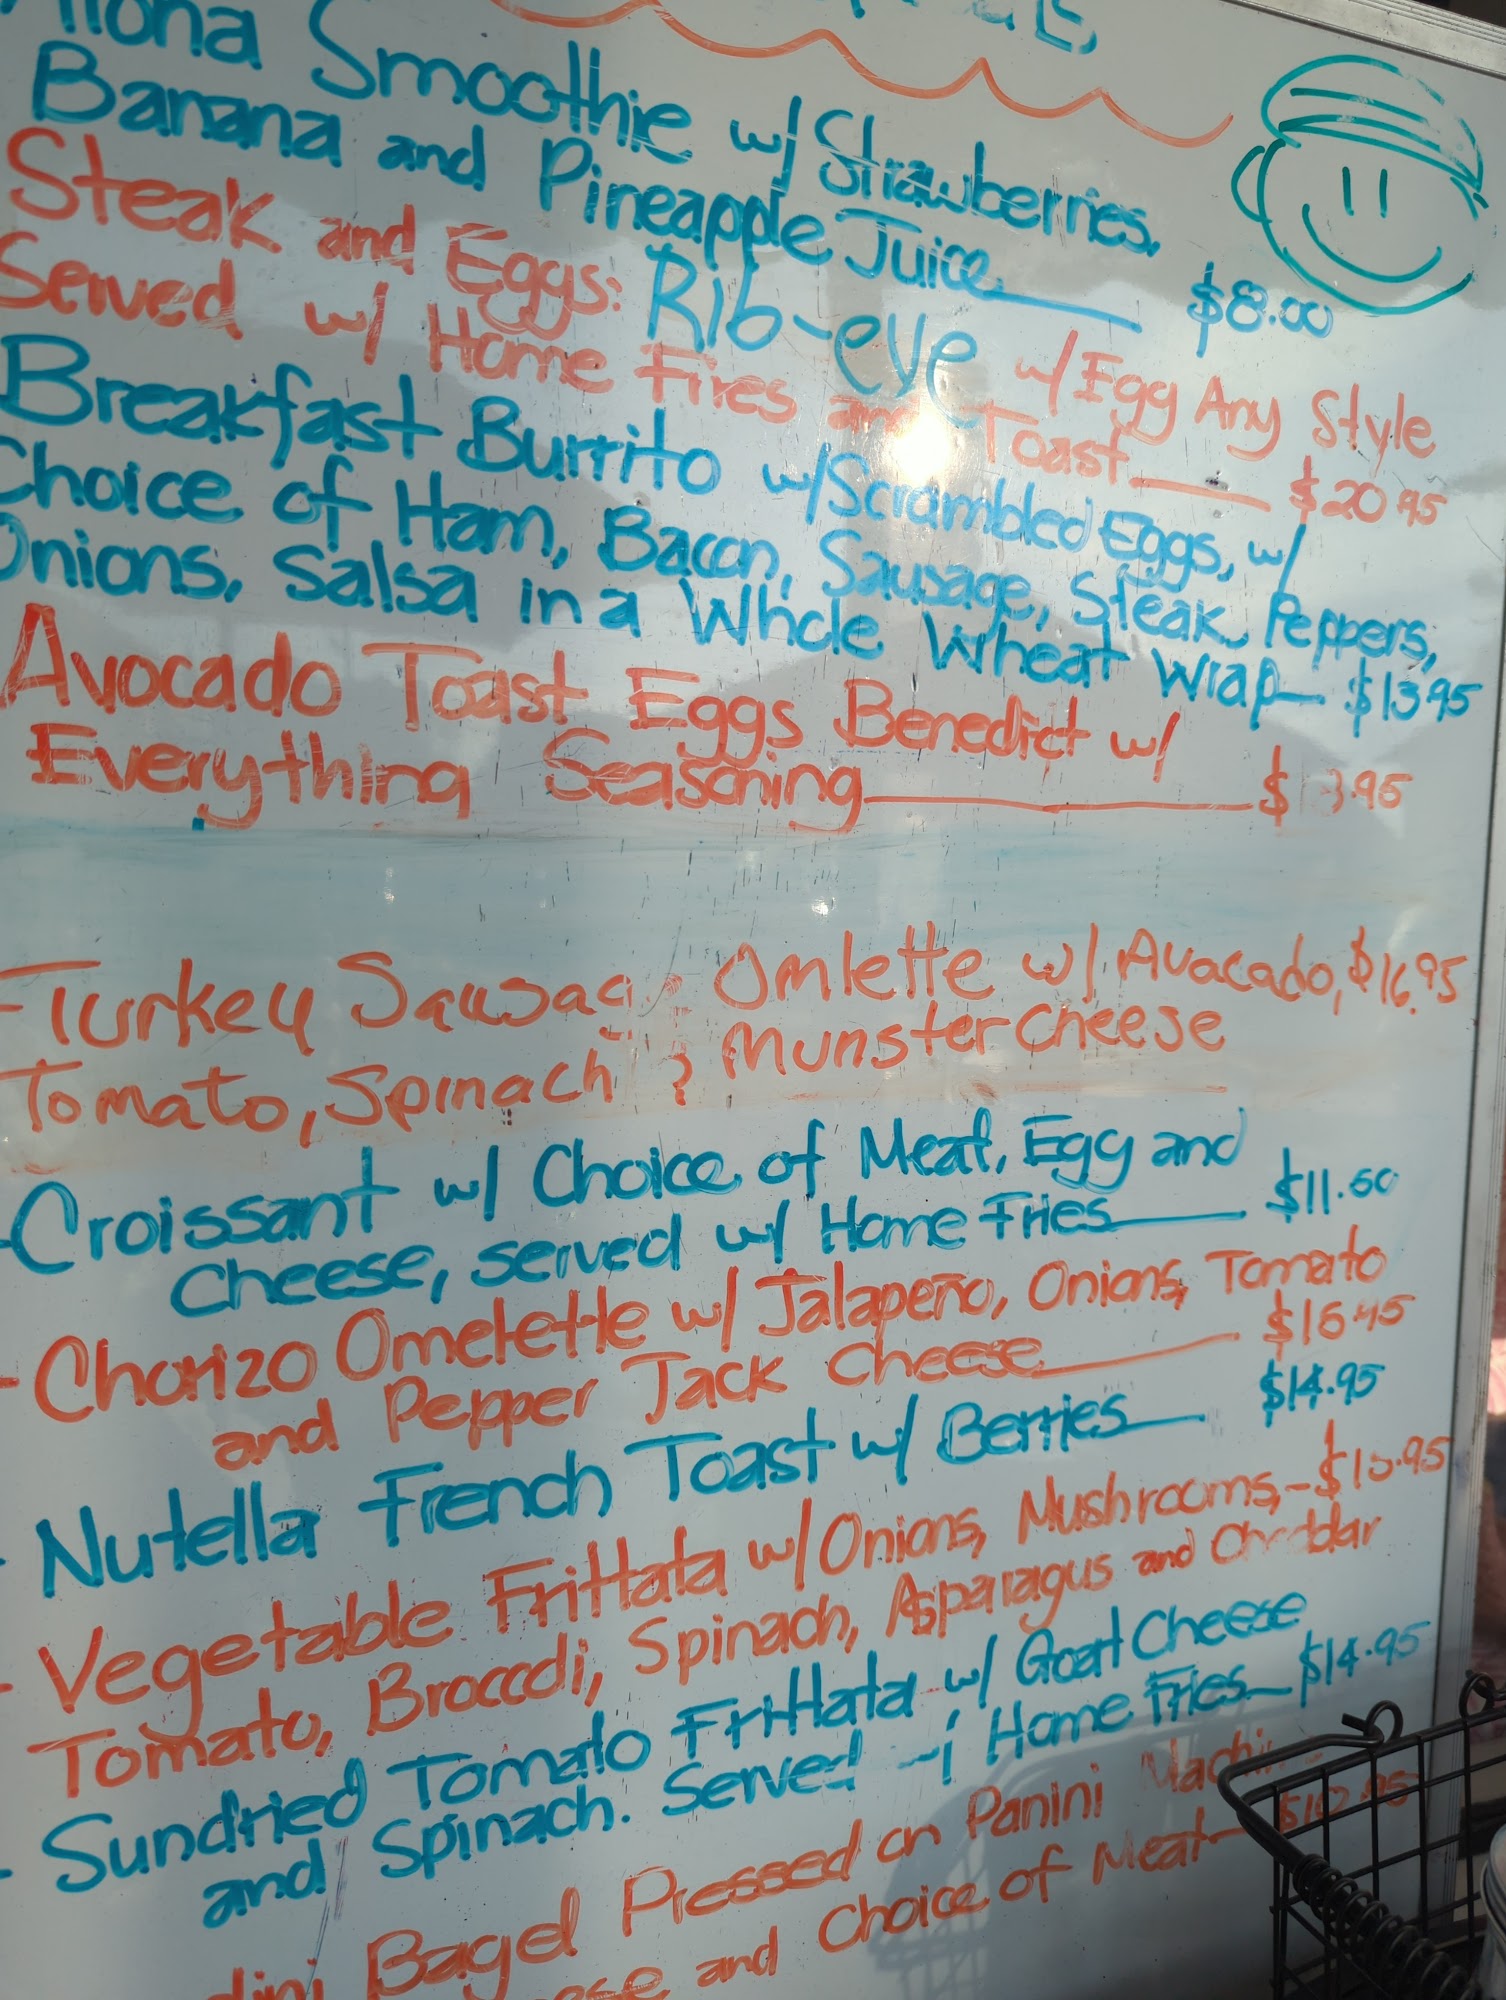 Smoothie w/ Strawberries,
Banana and Pineapple Juice $8.00
Steak and Eggs: Rib-eye w/ Egg Any Style
Served w/ Home Fires and Toast $20.95
Breakfast Burrito w/ Scrambled Eggs, w/
Choice of Ham, Bacon, Sausage, Steak, Peppers,
Onions, Salsa in a Whole Wheat Wrap $13.95
Avocado Toast Eggs Benedict w/
Everything Seasoning
- Turkey Sausag Omlette w/ Avacado, $16.95
Tomato, Spinach & Munster Cheese
- Croissant w/ Choice of Meat, Egg and
Cheese, served w/ Home Fries $11.50
- Chorizo Omelette w/ Jalapeño, Onions, Tomato
and Pepper Jack Cheese
- Nutella French Toast w/ Berries $14.95
- Vegetable Frittata w/ Onions, Mushrooms,
Tomato, Broccoli, Spinach, Asparagus and Cheddar
- Sundried Tomato Frittata w/ Goat Cheese
and Spinach. Served w/ Home Fries $14.95
Bagel Pressed on Panini
and Choice of Meat